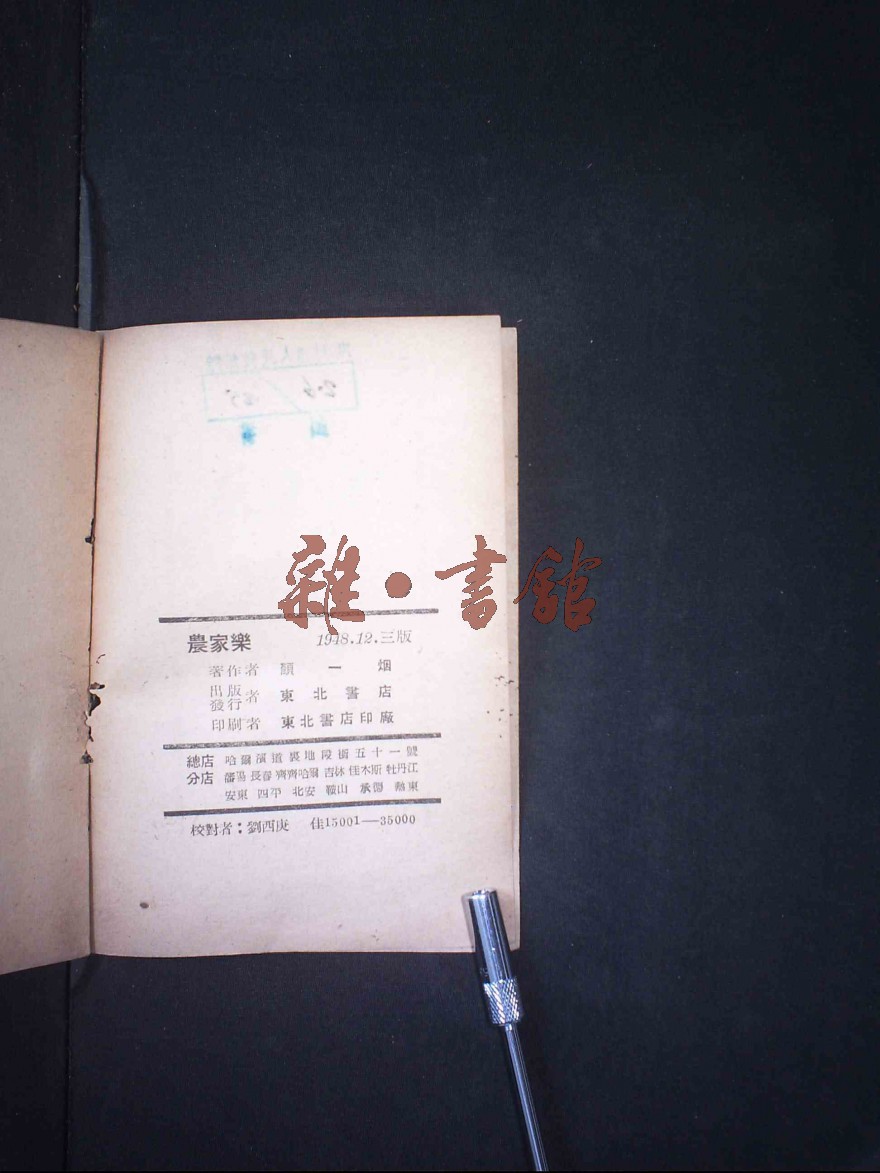 雜·書館
農家樂 1948.12.三版
著作者 顏一烟
出版發行者 東北書店
印刷者 東北書店印廠
總店 哈爾濱道裏地段街五十一號
分店 瀋陽 長春 齊齊哈爾 吉林 佳木斯 牡丹江
安東 四平 北安 鞍山 承德 熱東
校對者：劉西庚 佳15001—35000